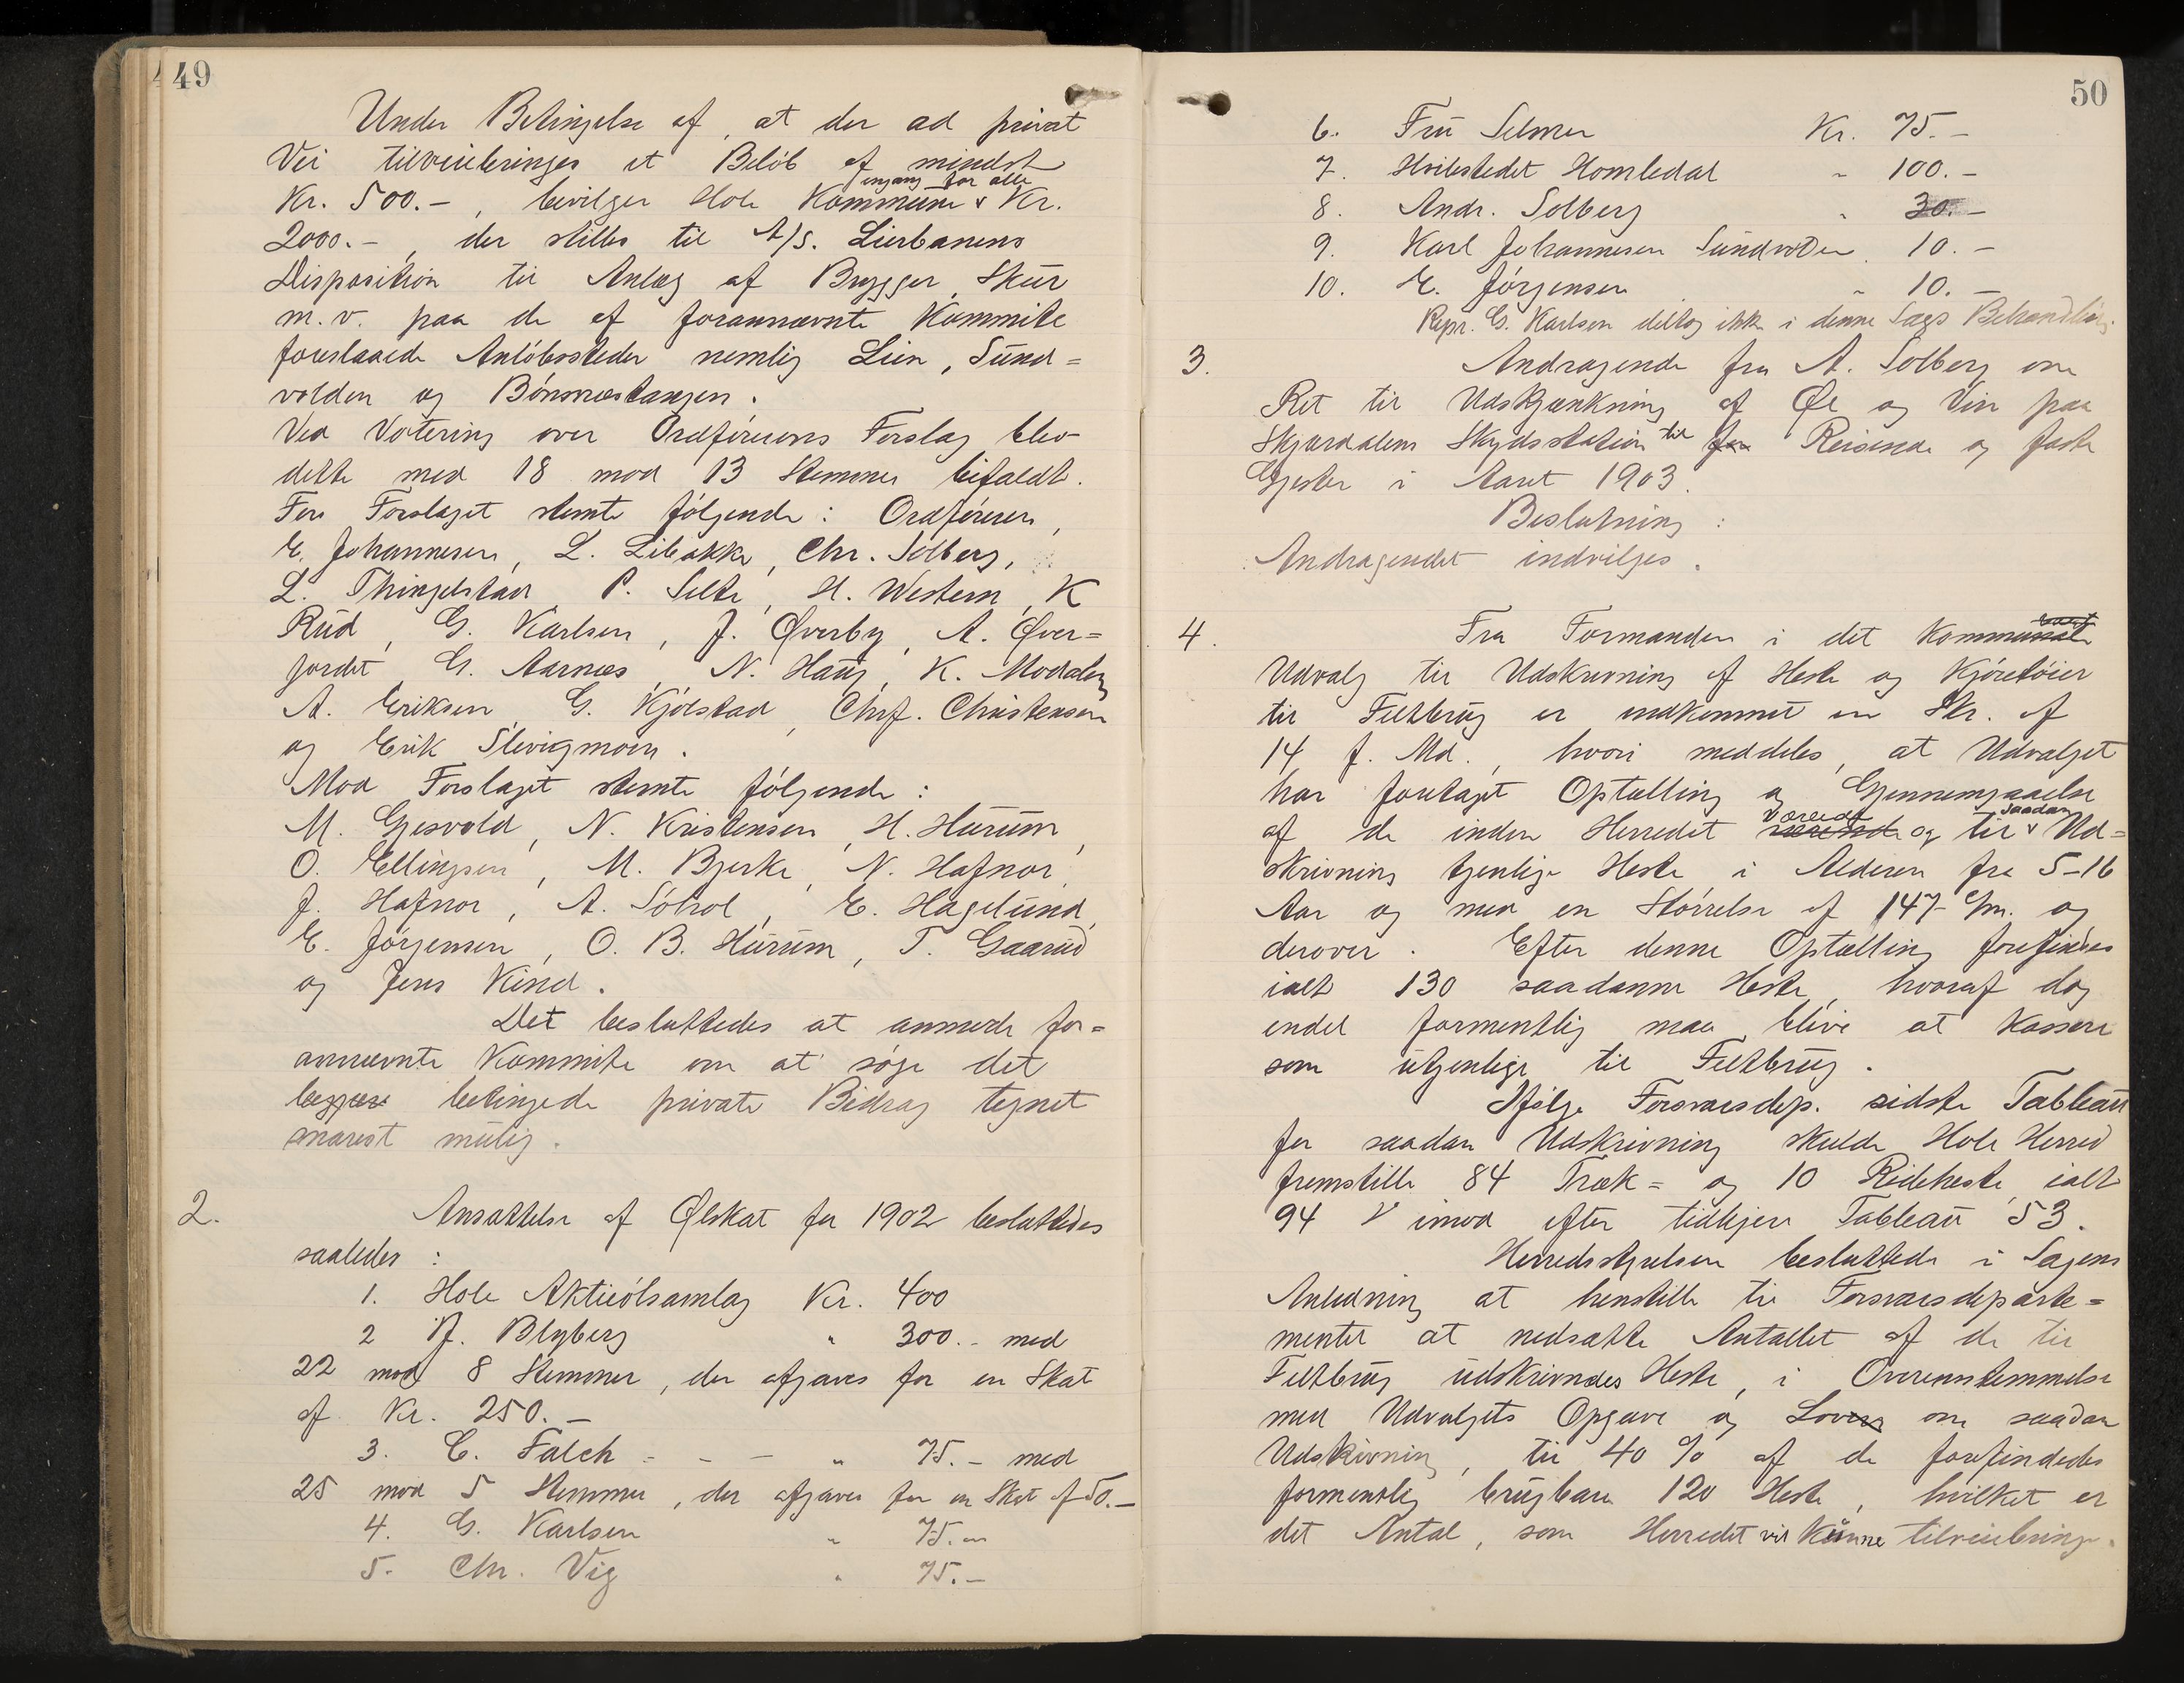 49
Under Betingelse af, at der ad privat
Vei tilveiebringes et Beløb af mindst
engang for alle
Kr. 500.-, bevilger Hole Kommune v Kr.
2000.-, der stilles til A/S. Lierbanens
Disposition til Anlæg af Brygger, Skur
m.v. paa de af forannævnte Kommite
foreslaaede Anløbssteder nemlig Lien, Sund=
volden og Bønsnæstangen.
Ved Votering over Ordførerens Forslag blev
dette med 18 mod 13 Stemmer bifaldt.
For Forslaget stemte følgende: Ordføreren,
E. Johannesen, L. Libakke, Chr. Solberg,
L. Thingelstad P. Selte, H. Western, K
Rud, G. Karlsen, J. Øverby, A. Øver=
jordet G. Aarnæs, N. Haug, K. Moddalen
A. Eriksen, G. Kjølstad, Chrf. Christensen
og Erik Slevigmoen.
Mod Forslaget stemte følgende:
M. Gjesvold, N. Kristensen, H. Hurum,
O. Ellingsen, M. Bjerke, N. Hafnor,
J. Hafnor, A. Søhol, E. Hagelund,
E. Jørgensen, O. B. Hurum, T. Gaarud
og Jens Kind.
Det besluttedes at anmode for=
annævnte Kommite om at søge det
betingede private Bidrag tegnet
snarest mulig.
2. Ansættelse af Ølskat for 1902 besluttedes
saaledes:
1. Hole Aktieølsamlag Kr. 400
2 N. Blyberg " 300.- med
22 mod 8 Stemmer, der afgaves for en Skat
af Kr. 250.-
3. C. Falch - - - " 75.- med
25 mod 5 Stemmer, der afgaves for en Skat af 50.-
4. G. Karlsen " 75.-
5. Chr. Vig " 75.-
50
6. Fru Selmer Kr. 75.-
7. Hvilestedet Homledal " 100.-
8. Andr. Solberg " 30.-
9. Karl Johannesen Sundvolden. 10.-
10. E. Jørgensen " 10.-
Repr. G. Karlsen deltog ikke i denne Sags Behandling.
3. Andragende fra A. Solberg om
Ret til Udskjænkning af Øl og Vin paa
Skjærdalens Skydsstation til for Reisende og faste
Gjester i Aaret 1903.
Beslutning:
Andragendet indvilges.
4. Fra Formanden i det kommunale
Udvalg til Udskrivning af Heste og Kjøretøier
til Feltbrug er indkommet en Skr. af
14 f. Md., hvori meddeles, at Udvalget
har foretaget Optælling og Gjennemgaaelse
saadan
af de inden Herredet værende og til v Ud=
skrivning tjenlige Heste i Alderen fra 5-16
Aar og med en Størrelse af 147 c/m. og
derover. Efter denne Optælling forefindes
ialt 130 saadanne Heste, hvoraf dog
endel formentlig maa blive at kassere
som utjenlige til Feltbrug.
Ifølge Forsvarsdep. sidste Tableau
for saadan Udskrivning skulde Hole Herred
fremstille 84 Træk= og 10 Rideheste, ialt
94 v imod efter tidligere Tableau 53.
Herredsstyrelsen besluttede i Sagens
Anledning at henstille til Forsvarsdeparte=
mentet at nedsætte Antallet af de til
Feltbrug udskrivndes Heste, i Overensstemmelse
med Udvalgets Opgave og Loven om saadan
Udskrivning, til 40 % af de forefindedes
formentlig brugbare 120 Heste, hvilket er
det Antal, som Herredet vil kunne tilveiebringe.